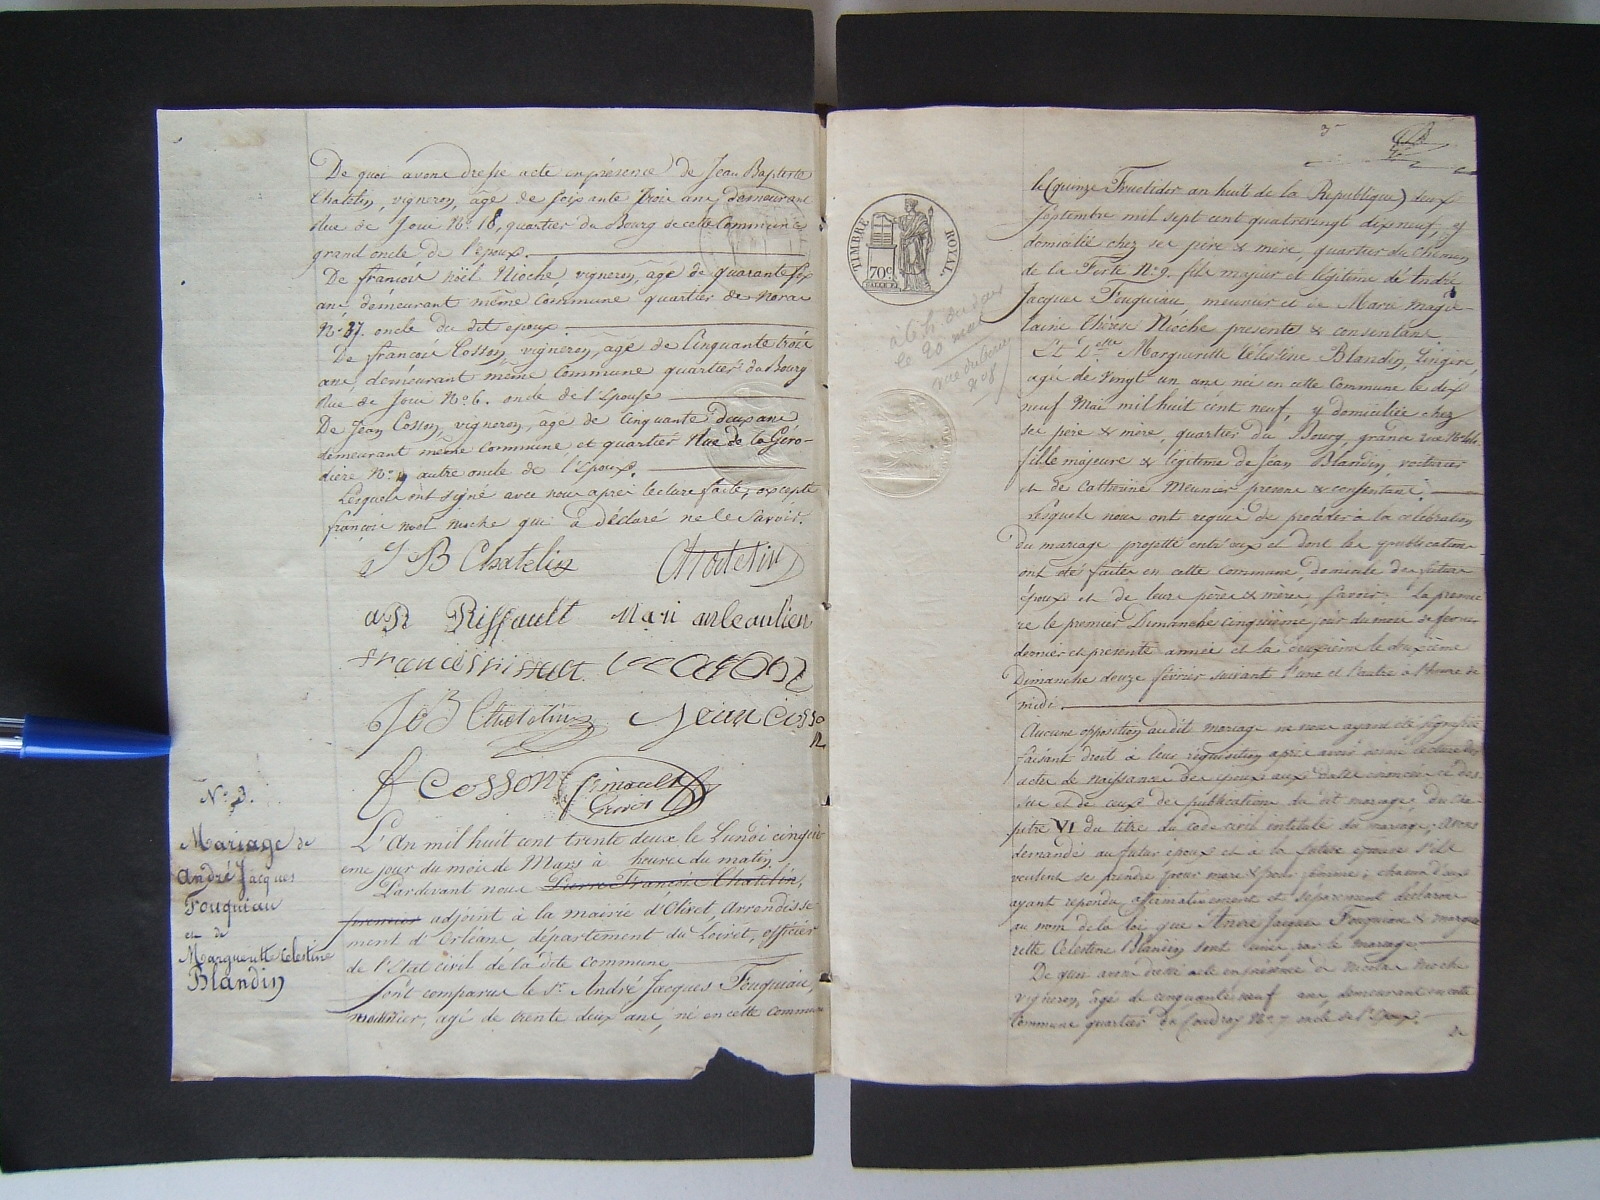 De quoi avons dressé acte en présence de Jean Baptiste
Chatelin, vigneron, âgé de soixante trois ans demeurant
Rue de Jour No. 18, quartier du Bourg de cette Commune
grand oncle de l'époux.
De françois noël Nioche, vigneron, âgé de quarante six
ans, demeurant même Commune quartier de
No. 37. oncle du dit époux.
De françois Cosson, vigneron, âgé de Cinquante trois
ans, demeurant même Commune quartier du Bourg
Rue de Jour No. 6. oncle de l'épouse
De Jean Cosson, vigneron, âgé de Cinquante deux ans
demeurant même Commune, et quartier Rue de la Giro-
dière No. autre oncle de l'épouse.
Lesquels ont signé avec nous après lecture faite, excepté
françois noël nioche qui a déclaré ne le Savoir.
J B Chatelin Chatelin
Riffault
JB Chatelin Jean Cosso
n
f Cosson Pinault
No. 3.
Mariage de
André Jacques
Fouquiau
et de
Margueritte Celestine
Blandin
L'An mil huit cent trente deux le Lundi cinqui-
eme jour du mois de Mars à heures du matin,
Pardevant nous Pierre François Chatelin,
premier adjoint à la mairie d'Olivet, Arrondisse
ment d'Orléans, département du Loiret, officier
de l'Etat civil de la dite commune
Sont comparus le Sr. André Jacques Fouquiau,
meunier, agé de trente deux ans, né en cette commune
3e
TIMBRE ROYAL
70c.
le (quinze Fructidor an huit de la République) deux
Septembre mil sept cent quatrevingt dix neuf, y
domicilié chez ses père & mère, quartier du Chemin
de la Ferté No. 9. fils majeur et légitime de André
Jacques Fouquiau meunier et de Marie Magde-
laine Thérèse Nioche présents & consentans
Et Dlle Margueritte Célestine Blandin, Lingère,
agée de vingt un ans née en cette Commune le dix
neuf Mai mil huit cent neuf, y domiciliée chez
ses père & mère, quartier du Bourg, grande rue No.
fille majeure & légitime de Jean Blandin voiturier
et de Catherine Meunier présens & consentans.
Lesquels nous ont requis de procéder à la célébration
du mariage projetté entr'eux et dont les publications
ont été faites en cette commune, domicile des futurs
époux et de leurs pères & mères, Savoir: La premiè
re le premier Dimanche cinquième jour du mois de février
dernier et présente année et la deuxième le deuxième
Dimanche douze février suivant l'une et l'autre à l'heure de
midi.
Aucune opposition au dit mariage ne nous ayant été signifiée
faisant droit à leur réquisition après avoir donné lecture des
actes de naissance des époux aux dates énoncées ci des-
sus et de ceux de publications du dit mariage, du cha-
pitre VI du titre du code civil intitulé du mariage, avons
demandé au futur époux et à la future épouse s'ils
veulent se prendre pour mari & pour femme; chacun d'eux
ayant répondu affirmativement et séparément déclarons
au nom de la loi que André Jacques Fouquiau & Margue
ritte Celestine Blandin sont unis par le mariage.
De quoi avons dressé acte en présence de Nicolas Nioche
vigneron, âgé de cinquante neuf ans, demeurant en cette
Commune quartier du Coudray No. 7 oncle de l'époux.
De